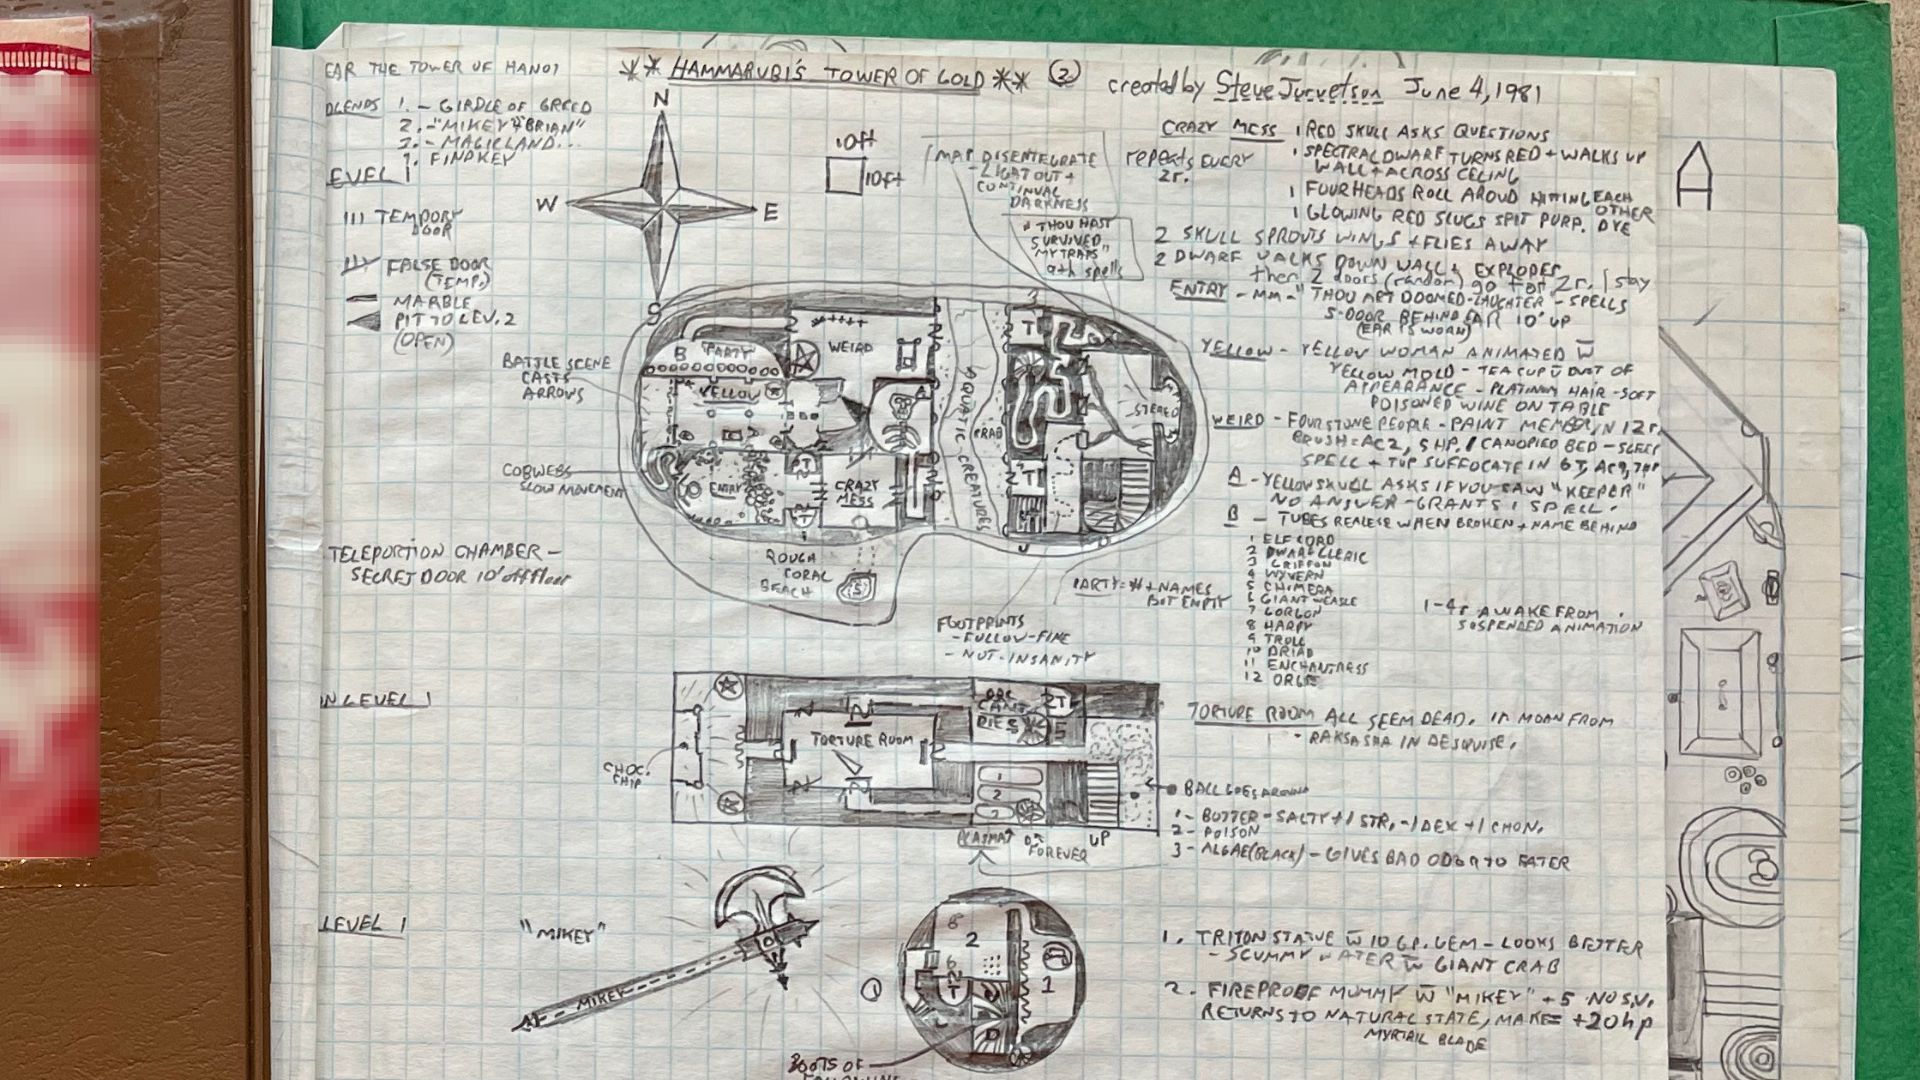 EAR THE TOWER OF HANOI
** HAMMARUBI'S TOWER OF GOLD ** (2)
created by Steve Jurvetson June 4, 1981
1. - GIRDLE OF GREED
2. - "MIKEY" & "BRIAN"
- MAGICLAND...
FIND KEY
EVEL 1
TEMPORY DOOR
FALSE DOOR
(TEMP.)
MARBLE
PIT TO LEV. 2
(OPEN)
N
W
E
S
10ft
10ft
MAP DISENTEGRATE
- LIGAT OUT +
CONTINVAL
DARKNESS
* THOU HAST
SURVIVED
MY TRAPS"
9th spells
repeats EVERY
2r.
CRAZY MESS 1 RED SKULL ASKS QUESTIONS
1 SPECTRAL DWARF TURNS RED + WALKS UP
WALL + ACROSS CELING
1 FOUR HEADS ROLL AROUD HITTING EACH
OTHER
1 GLOWING RED SLUGS SPIT PURP. DYE
2 SKULL SPROUTS WINGS + FLIES AWAY
2 DWARF WALKS DOWN WALL + EXPLODES
then 2 doors (random) go for 2r. 1 stay
ENTRY - MM - "THOU ART DOOMED - LAUGHTER - SPELLS
S-DOOR BEHIND EAR 10' UP
(EAR IS WORN)
YELLOW - YELLOW WOMAN ANIMATED W
YELLOW MOLD - TEA CUP W DUST OF
APPEARANCE - PLATINUM HAIR - SOFT
POISONED WINE ON TABLE
WEIRD - FOUR STONE PEOPLE - PAINT MEMBER IN 12r.
BRUSH = AC2, 5 HP, 1 CANOPIED BED - SLEEP
SPELL + TOP SUFFOCATE IN 6T, AC9, 7HP
A - YELLOW SKULL ASKS IF YOU SAW "KEEPER"
NO ANSWER - GRANTS 1 SPELL.
B - TUBES REALESE WHEN BROKEN + NAME BEHIND
1 ELF LORD
2 DWARF CLERIC
3 GRIFFON
4 WYVERN
5 CHIMERA
6 GIANT WEASLE
7 GORGON
8 HARPY
9 TROLL
10 DRIAD
11 ENCHANTRESS
12 ORGE
1-4r AWAKE FROM
SUSPENDED ANIMATION
PARTY = # + NAMES
BUT EMPTY
BATTLE SCENE
CASTS
ARROWS
COBWEBS
SLOW MOVEMENT
TELEPORTION CHAMBER -
SECRET DOOR 10' off floor
B PARTY
WEIRD
YELLOW
A
ENTRY
CRAZY
MESS
T
T
AQUATIC CREATURES
CRAB
T
T
STEREO
ROUGH
CORAL
BEACH
S
FOOTPRINTS
- FOLLOW - FINE
- NOT - INSANITY
N LEVEL 1
CHOC.
CHIP
TORTURE ROOM
ORC
CANT
DIES
T
5
1
2
3
PLASMA?
FOREVER
UP
TORTURE ROOM ALL SEEM DEAD. 1r MOAN FROM
- RAKSASHA IN DESQUISE.
BALL GOES AROUND
1 - BUTTER - SALTY +1 STR, -1 DEX +1 CHON.
2 - POISON
3 - ALGAE (BLACK) - GIVES BAD ODOR TO EATER
LEVEL 1
"MIKEY"
MIKEY
1
2
T
D
1
BOOTS OF
1. TRITON STATUE W 10 G.P. GEM - LOOKS BETTER
- SCUMMY WATER W GIANT CRAB
2. FIREPROOF MUMMY W "MIKEY" + 5 NO S.V.
RETURNS TO NATURAL STATE, MAKE = +20 hp
BLADE